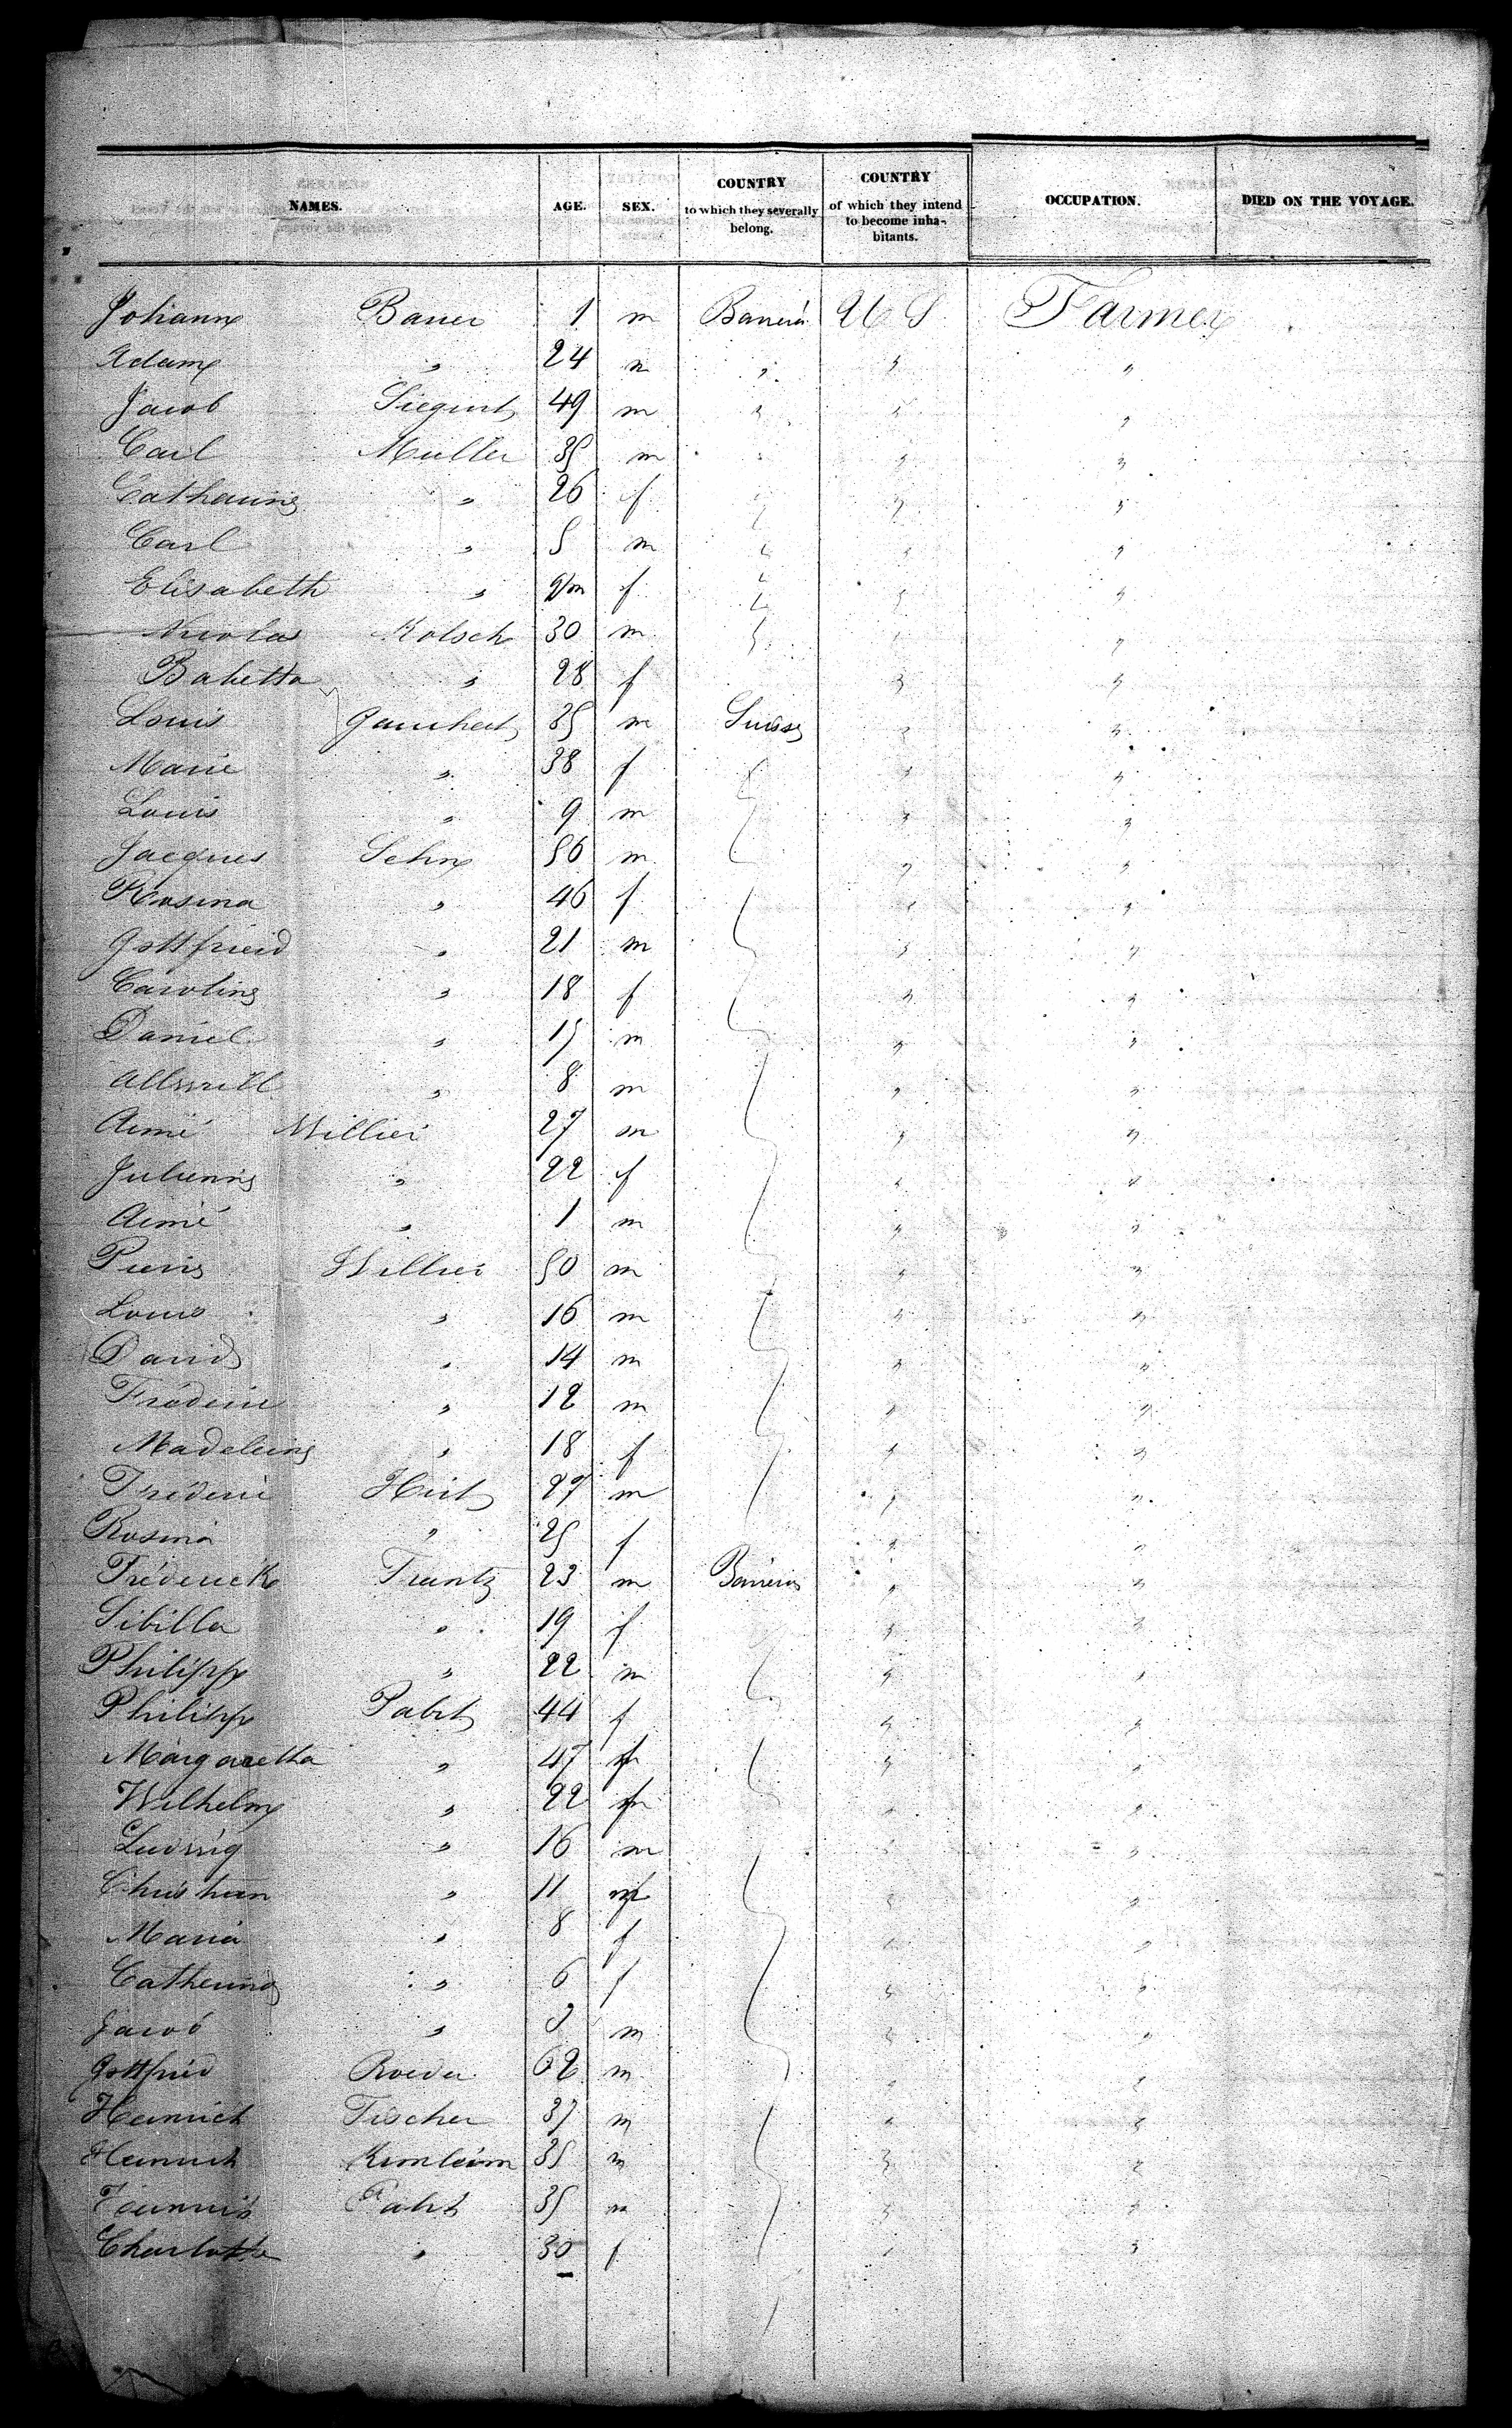 NAMES. AGE. SEX. COUNTRY to which they severally belong. COUNTRY of which they intend to become inha-bitants. OCCUPATION. DIED ON THE VOYAGE.
Johann Bauer 1 m Bavieria U S Farmer
Adam " 24 m " " "
Jacob Siegurt 49 m " " "
Carl Muller 35 m " " "
Catharina " 26 f " " "
Carl " 5 m " " "
Elisabeth " 9/m f " " "
Nicolas Kolsch 30 m " " "
Babetta " 28 f " "
Louis Gauchat 35 m Suisse " "
Marie " 38 f " "
Louis " 9 m " "
Jacques Sehn 56 m " "
Rosina " 46 f " "
Gottfried " 21 m " "
Caroline " 18 f " "
Daniel " 15 m " "
" 8 m " "
Aimé Willier 27 m " "
Julienne " 22 f " "
Aimé " 1 m " "
Pierre Willier 50 m " "
Louis " 16 m " "
David " 14 m " "
Fréderic " 12 m " "
Madeleine " 18 f " "
Fréderic Hirt 27 m " "
Rosina " 25 f " "
Fréderick Frantz 23 m Bavieria " "
Sibilla " 19 f " "
Philipp " 22 m " "
Philipp Pabst 44 f " "
Margaretha " 47 f " "
Wilhelm " 22 m " "
Ludwig " 16 m " "
Christian " 11 m " "
Maria " 8 f " "
Catherina " 6 f " "
Jacob " 3 m " "
Gottfried Roeder 62 m " "
Heinrich Fischer 37 m " "
Heinrich 35 m " "
Pabst 35 m " "
Charlotte " 30 f " "